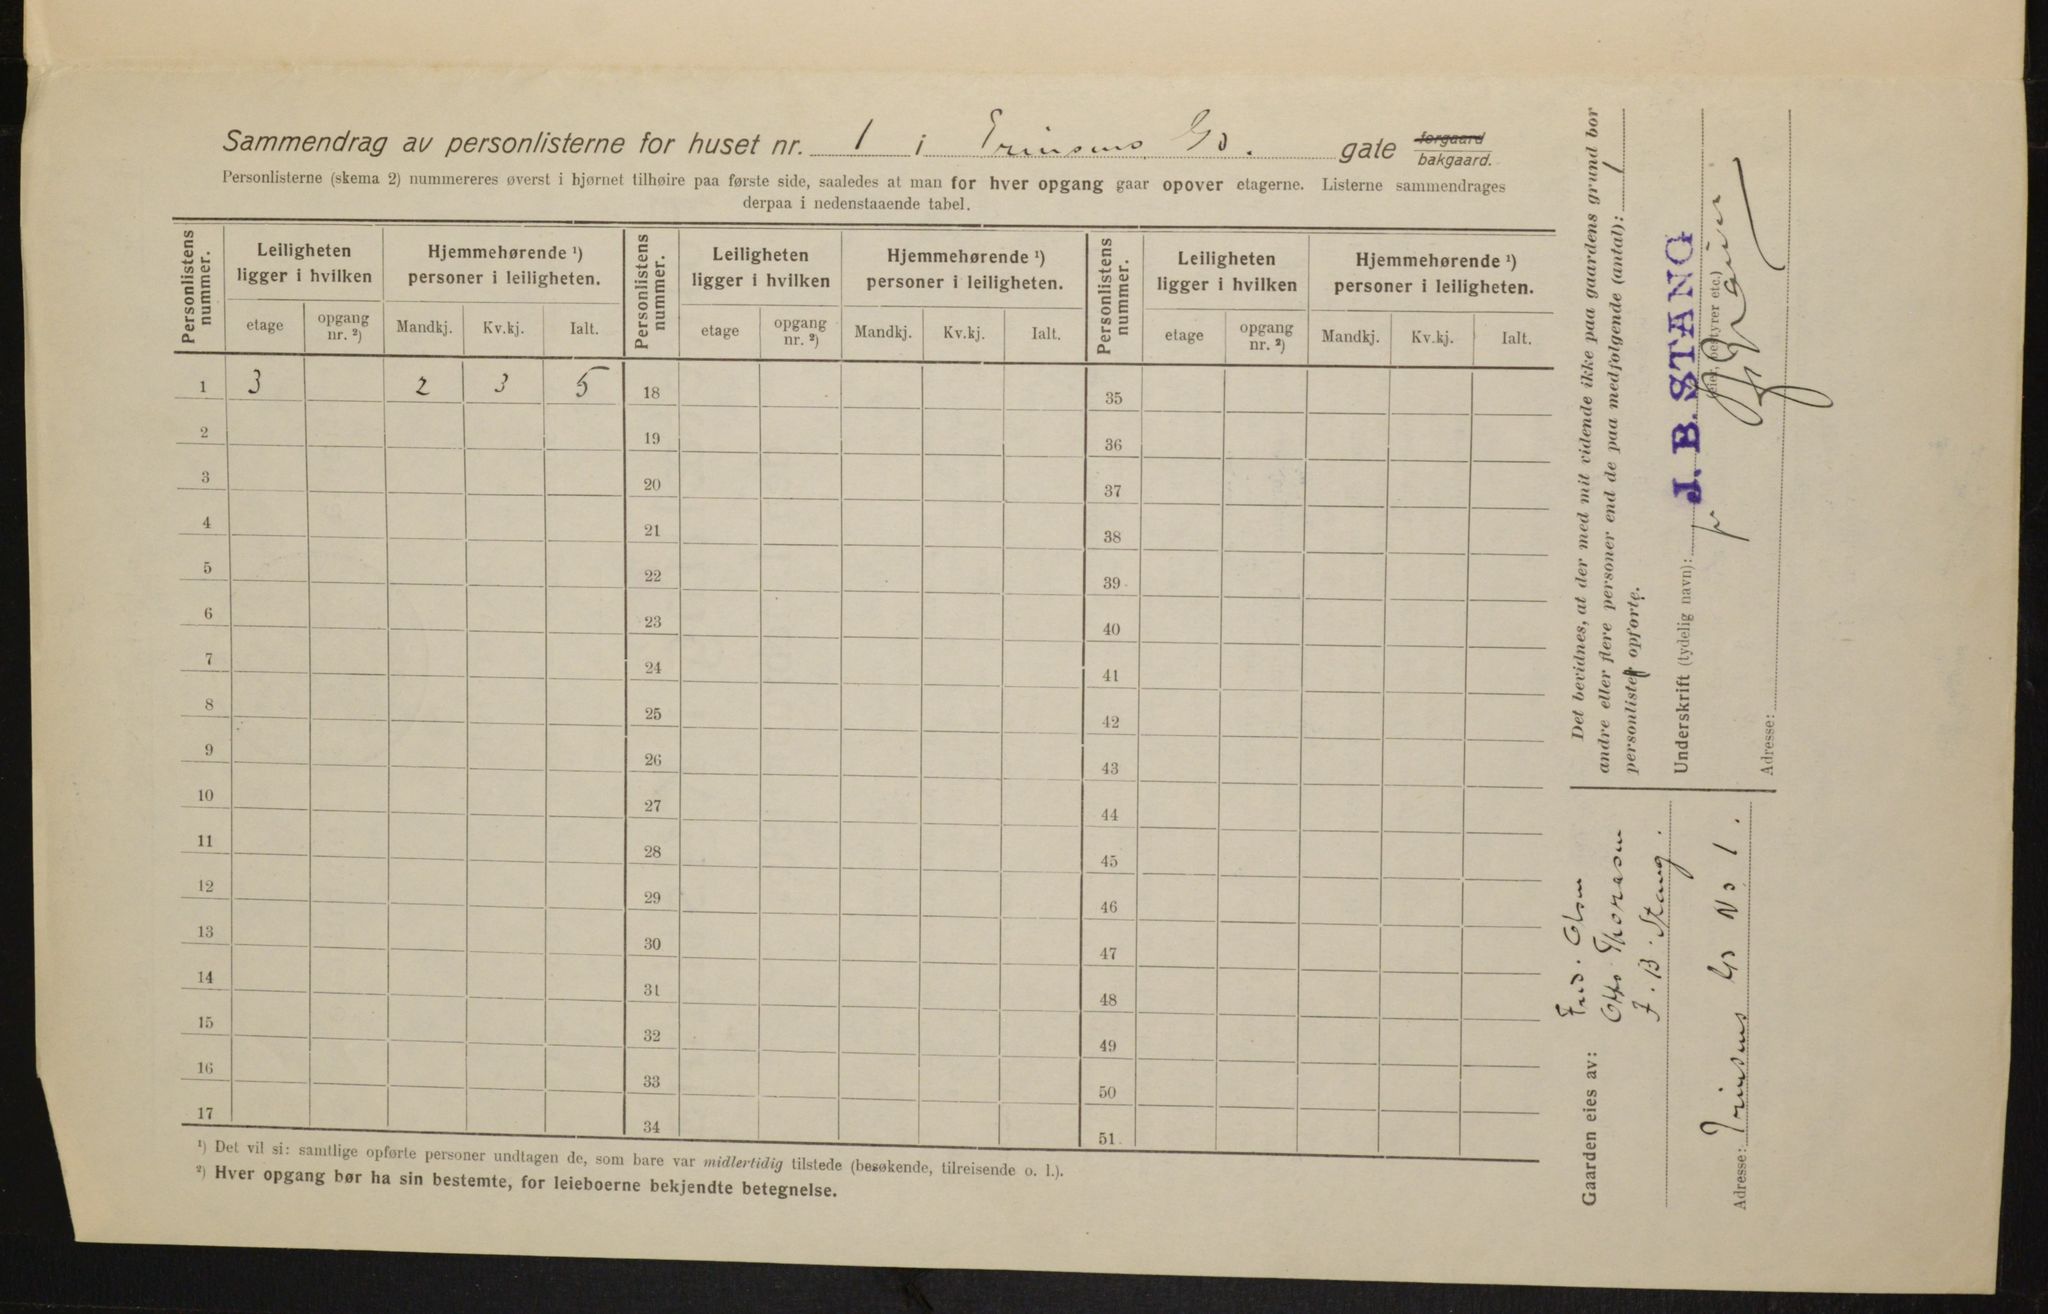 Sammendrag av personlisterne for huset nr. 1 i Prinsens Gd. gate forgaard bakgaard.
Personlisterne (skema 2) nummereres øverst i hjørnet tilhøire paa første side, saaledes at man for hver opgang gaar opover etagerne. Listerne sammendrages
derpaa i nedenstaaende tabel.
Personlistens nummer.
Leiligheten ligger i hvilken
Hjemmehørende ¹) personer i leiligheten.
Personlistens nummer.
Leiligheten ligger i hvilken
Hjemmehørende ¹) personer i leiligheten.
Personlistens nummer.
Leiligheten ligger i hvilken
Hjemmehørende ¹) personer i leiligheten.
etage opgang nr. ²) Mandkj. Kv.kj. Ialt. etage opgang nr. ²) Mandkj. Kv.kj. Ialt. etage opgang nr. ²) Mandkj. Kv.kj. Ialt.
1 3 2 3 5 18 35
2 19 36
3 20 37
4 21 38
5 22 39
6 23 40
7 24 41
8 25 42
9 26 43
10 27 44
11 28 45
12 29 46
13 30 47
14 31 48
15 32 49
16 33 50
17 34 51
¹) Det vil si: samtlige opførte personer undtagen de, som bare var midlertidig tilstede (besøkende, tilreisende o. l.).
²) Hver opgang bør ha sin bestemte, for leieboerne bekjendte betegnelse.
Det bevidnes, at der med mit vidende ikke paa gaardens grund bor
andre eller flere personer end de paa medfølgende (antal): 1
personlister opførte.
Underskrift (tydelig navn): J. B. STANG
(eier, bestyrer etc.)
pr
Adresse:
Gaarden eies av: Fred. Olsen
Otto Thoresen
J. B. Stang.
Adresse: Prinsens Gd No 1.